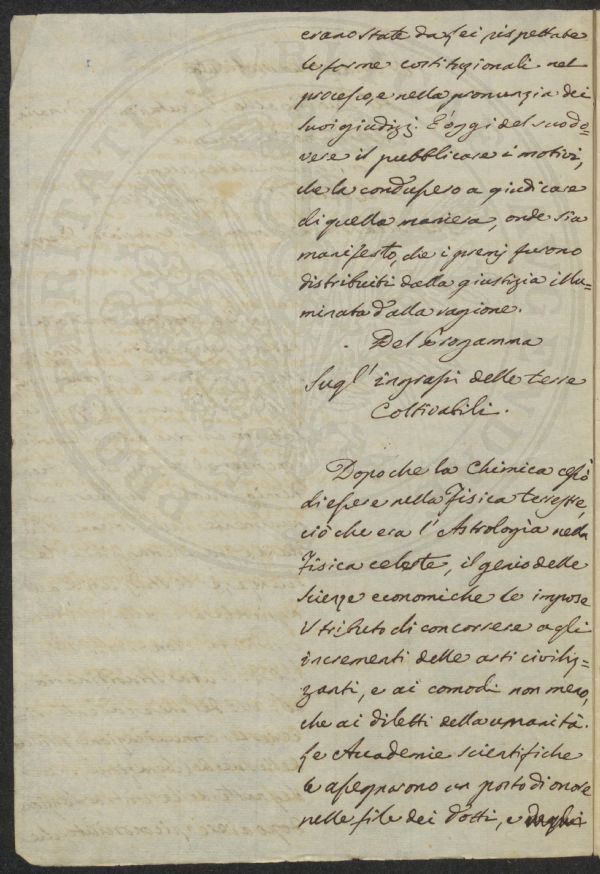 erano state da Lei rispettate
le forme costituzionali nel
processo, e nella pronunzia dei
suoi giudizj. È oggi del suo do=
vere il pubblicare i motivi,
che la condussero a giudicare
di quella maniera, onde sia
manifesto, che i premj furono
distribuiti dalla giustizia illu=
minata dalla ragione.
Del Programma
Sugl' ingrassi delle terre
Coltivabili.
Dopo che la Chimica cessò
di essere nella Fisica terrestre,
ciò che era l'Astrologia nella
Fisica celeste, il genio delle
scienze economiche le impose
il tributo di concorrere agli
incrementi delle arti civiliz=
zanti, e ai comodi non meno,
che ai diletti della umanità.
Le Accademie scientifiche
le assegnarono un posto di onore
nelle file dei dotti, e